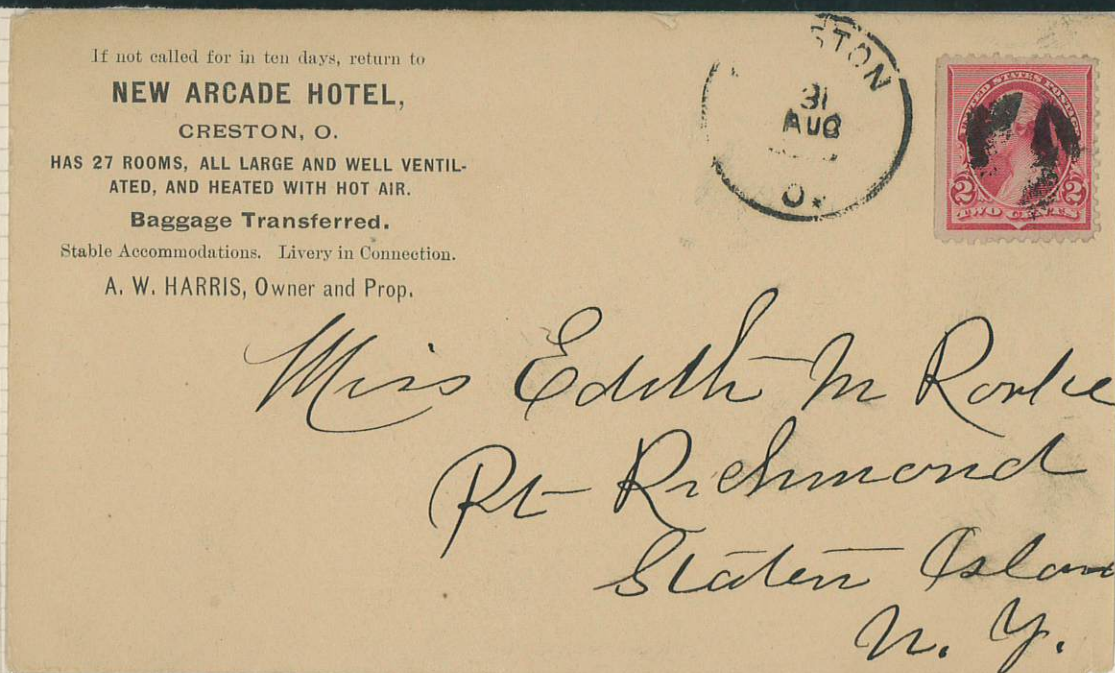 If not called for in ten days, return to
NEW ARCADE HOTEL,
CRESTON, O.
HAS 27 ROOMS, ALL LARGE AND WELL VENTIL-
ATED, AND HEATED WITH HOT AIR.
Baggage Transferred.
Stable Accommodations. Livery in Connection.
A. W. HARRIS, Owner and Prop.
STON
31
AUG
O.
UNITED STATES POSTAGE
2 2
TWO CENTS
Miss Edith M
Pt Richmond
Staten Islan
N. Y.